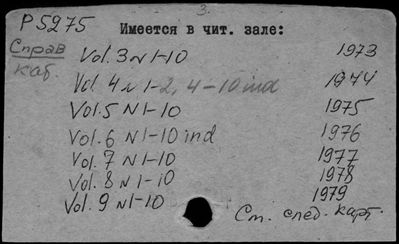 3.
P5275 Имеется в чит. зале:
Справ Vol. 3 N 1-10 1973
каб. Vol. 4 N 1-2, 4-10 ind 1974
Vol. 5 N 1-10 1975
Vol. 6 N 1-10 ind 1976
Vol. 7 N 1-10 1977
Vol. 8 N 1-10 1978
Vol. 9 N 1-10 1979
См. след. карт.